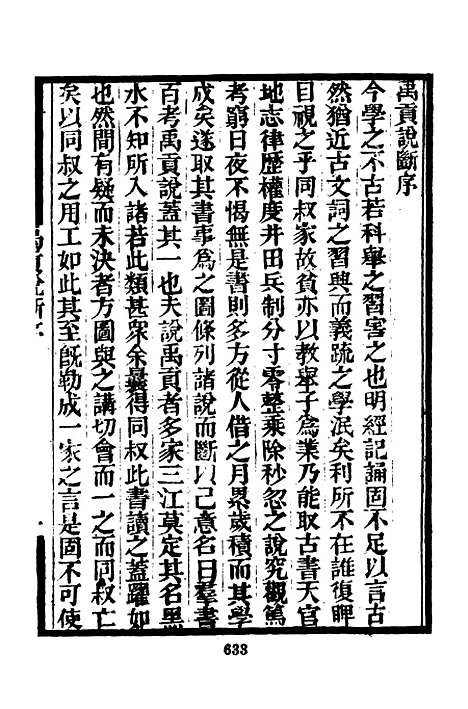 禹貢說斷序
今學之不古若科舉之習害之也明經記誦固不足以言古
然猶近古文詞之習興而義疏之學泯矣利所不在誰復睥
目視之乎同叔家故貧亦以教舉子為業乃能取古書天官
地志律歷權度井田兵制分寸零整乘除秒忽之說究觀篤
考窮日夜不愒無是書則多方從人借之月累歲積而其學
成矣遂取其書事為之圖條列諸說而斷以己意名曰羣書
百考禹貢說蓋其一也夫說禹貢者多家三江莫定其名黑
水不知所入諸若此類甚眾余曩得同叔此書讀之蓋躍如
也然間有疑而未決者方圖與之講切會而一之而同叔亡
矣以同叔之用工如此其至旣勒成一家之言是固不可使
633